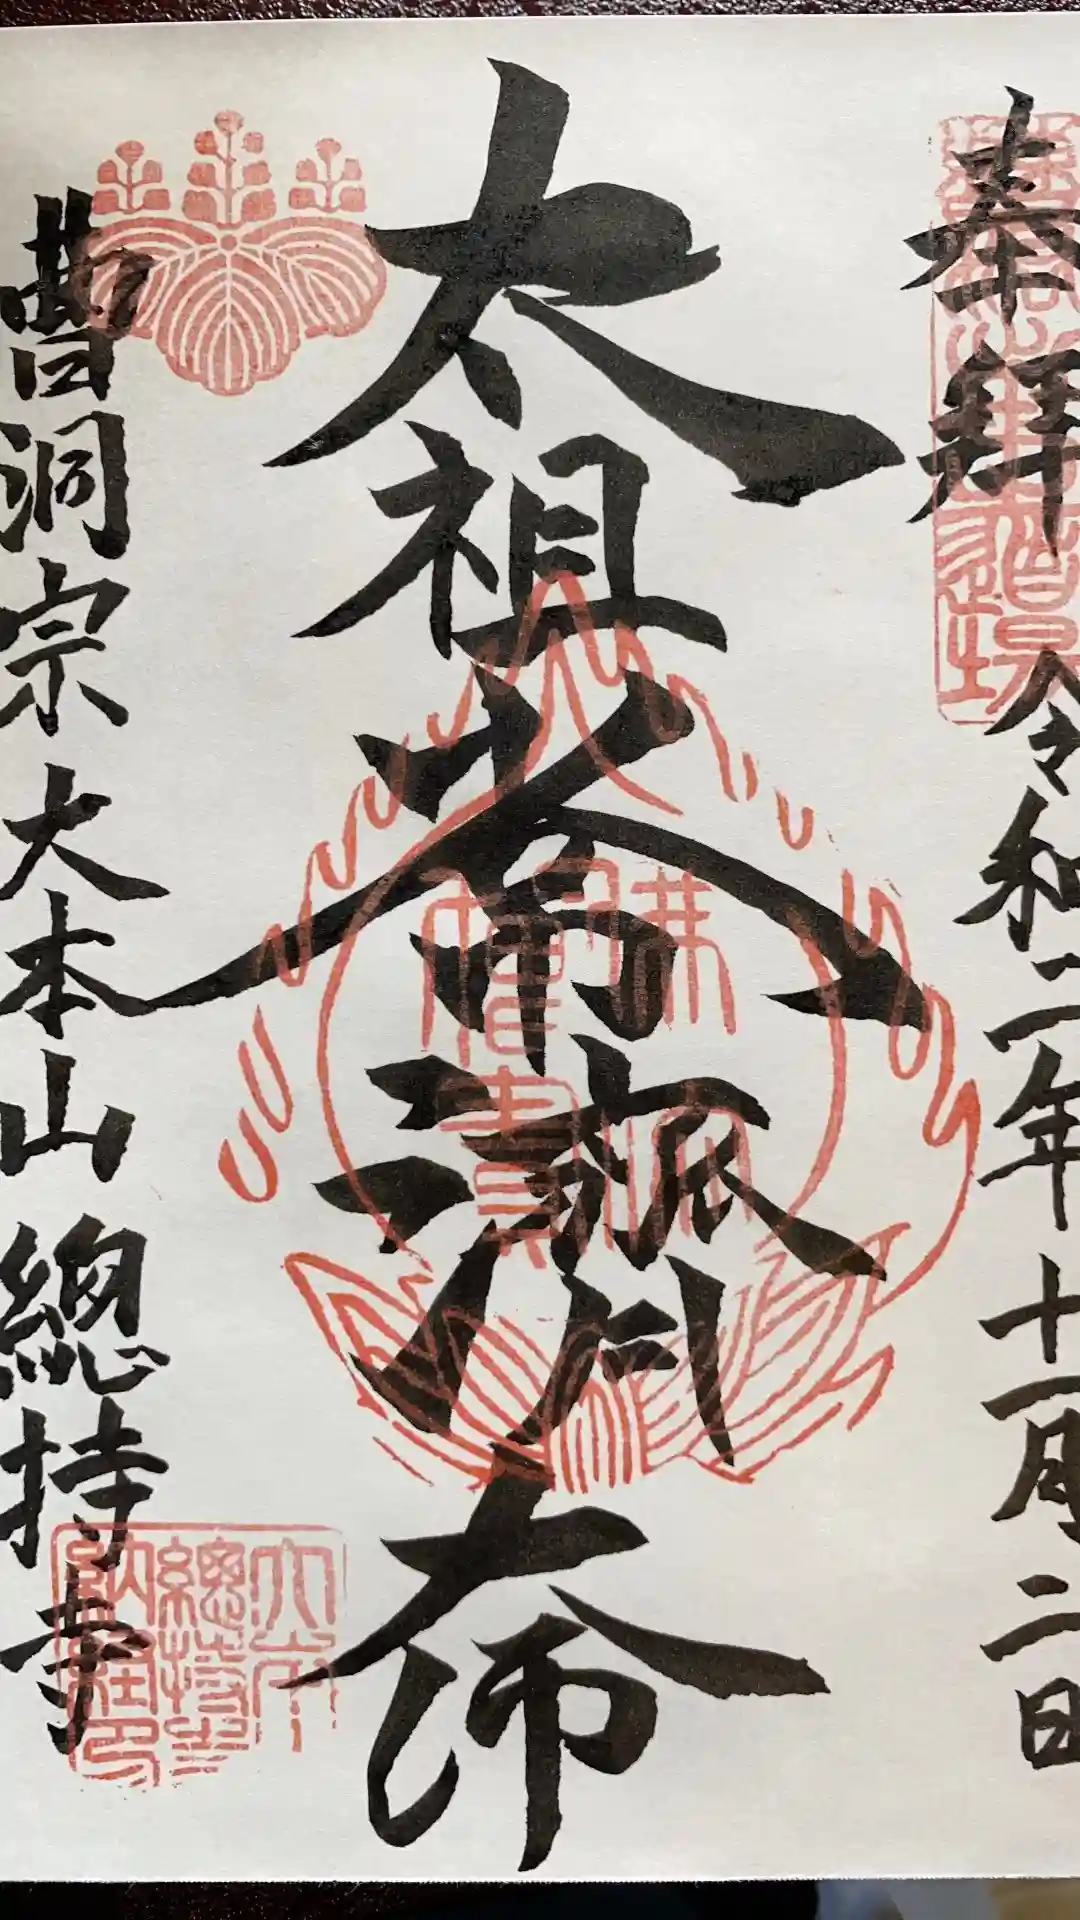 奉拝
令和二年十一月二日
太祖常済大師
曹洞宗大本山總持寺
大本山
總持寺
納経印